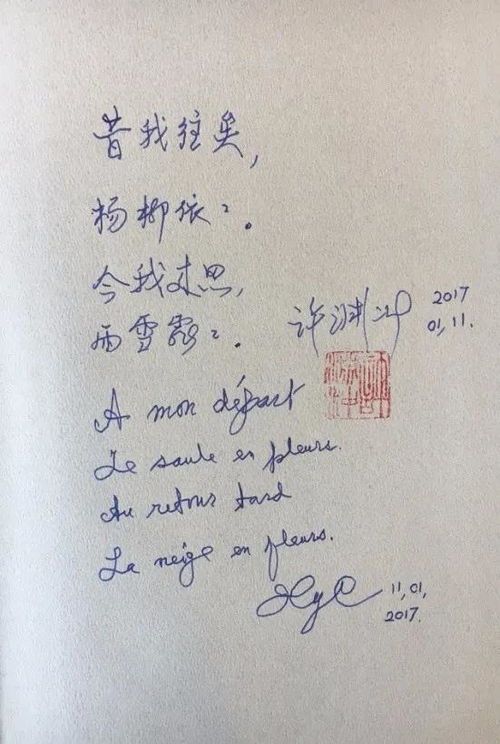 昔我往矣,
杨柳依々。
今我来思,
雨雪霏々。
许渊冲
2017
01,11.
A mon départ
Le saule en pleurs.
Au retour tard
La neige en fleurs.
XyC
11,01,
2017.